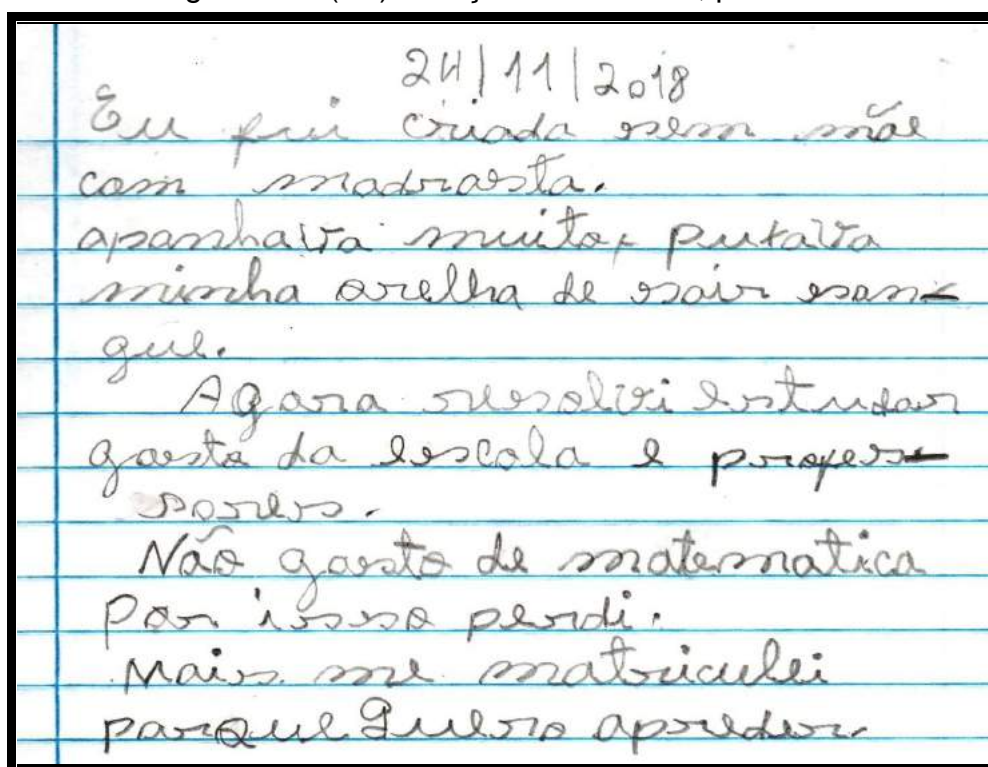 24/11/2018
Eu fui criada sem mãe
com madrasta.
apanhava muito, putava
minha orelha de sair san-
gue.
Agora resolvi estudar
gosto da escola e profes-
sores.
Não gosto de matematica
Por isso perdi.
Mais me matriculei
porque Quero apreder